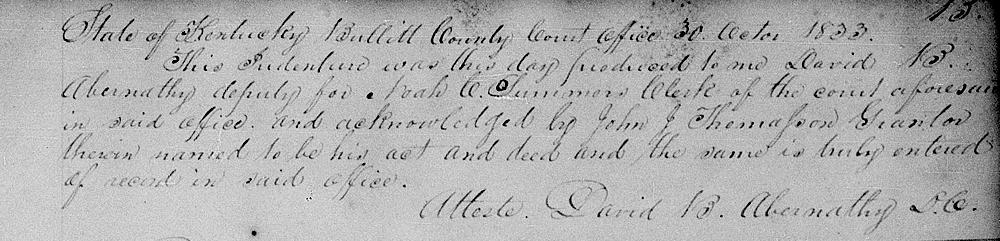 13.
State of Kentucky Bullitt County Court office 30 Octor 1833.
This Indenture was this day produced to me David B.
Abernathy deputy for Noah C. Summers Clerk of the court aforesaid
in said office. and acknowledged by John J Thomasson Grantor
therein named to be his act and deed and the same is truly entered
of record in said office.
Atteste. David B. Abernathy D.C.